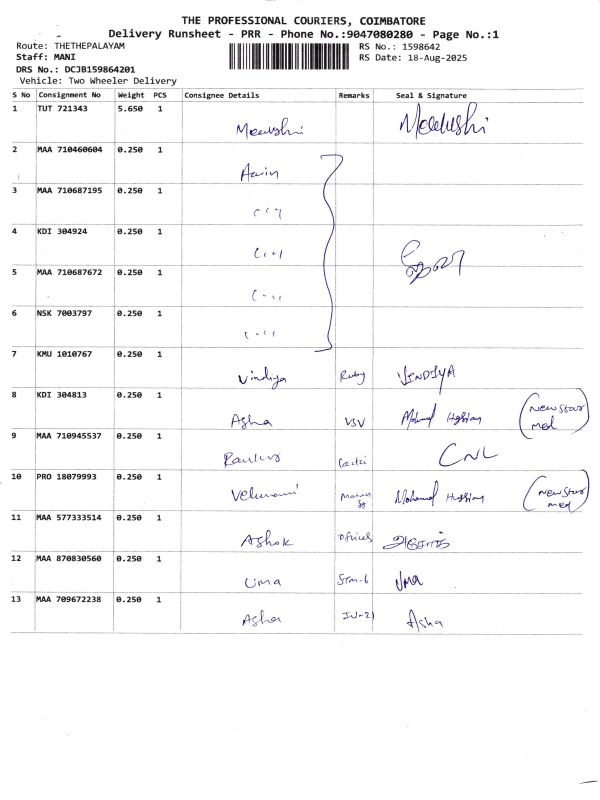 THE PROFESSIONAL COURIERS, COIMBATORE
Delivery Runsheet - PRR - Phone No.:9047080280 - Page No.:1
Route: THETHEPALAYAM RS No.: 1598642
Staff: MANI RS Date: 18-Aug-2025
DRS No.: DCJB159864201
Vehicle: Two Wheeler Delivery
S No Consignment No Weight PCS Consignee Details Remarks Seal & Signature
1 TUT 721343 5.650 1
2 MAA 710460604 0.250 1
3 MAA 710687195 0.250 1
4 KDI 304924 0.250 1
5 MAA 710687672 0.250 1
6 NSK 7003797 0.250 1
7 KMU 1010767 0.250 1
Vindiya Ruby VINDIYA
8 KDI 304813 0.250 1
Asha VSV (New Star med)
9 MAA 710945537 0.250 1
CNL
10 PRO 18079993 0.250 1
Velumani (New Star med)
11 MAA 577333514 0.250 1
Ashok
12 MAA 870830560 0.250 1
Uma Uma
13 MAA 709672238 0.250 1
Asha Asha